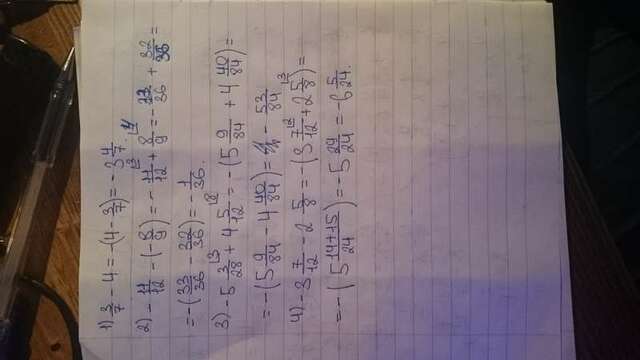 1) 3/7 - 4 = -(4 - 3/7) = -3 4/7.
2) - 11/12 - (- 8/9) = - 11/12 ⌊3 + 8/9 ⌊4 = - 33/36 + 32/36 =
= -(33/36 - 32/36) = - 1/36.
3) -5 3/28 ⌊3 + 4 5/12 ⌊8 = -(5 9/84 + 4 40/84) =
= -(5 9/84 - 4 40/84) = - 53/84
4) -3 7/12 - 2 5/8 = -(3 7/12 ⌊2 + 2 5/8 ⌊3) =
= -(5 14+15/24) = -5 29/24 = -6 5/24.